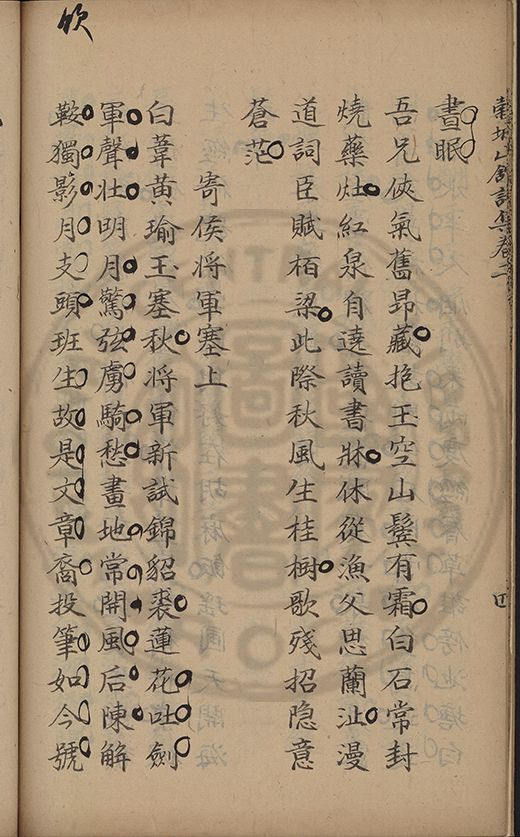 晝眠
吾兄俠氣舊昂藏抱玉空山鬢有霜白石常封
燒藥灶紅泉自遶讀書牀休從漁父思蘭沚漫
道詞臣賦栢梁此際秋風生桂樹歌殘招隐意
蒼茫
寄侯将軍塞上
白葦黃瑜玉塞秋将軍新試錦貂裘蓮花吐劍
軍聲壮明月驚弦虜騎愁畫地常開風后陳解
鞍獨影月支頭班生故是文章裔投筆如今號
欤